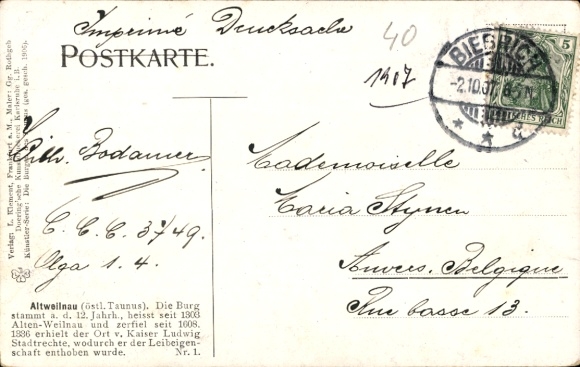 Imprimé Drucksache
POSTKARTE.
40
1907
BIEBRICH
-2.10.07. 8-9 N
5
DEUTSCHES REICH
Bodamer
C. C. C. 3749.
Olga 1. 4.
Mademoiselle
Maria Stynen
Anvers. Belgique
Rue basse 13.
Verlag: L. Klement, Frankfurt a. M., Maler: Gg. Rothgeb
Doering'sche Kunstdruckerei Karlsruhe i. B.
Künstler-Serie: Die Burgen des Taunus (ges. gesch. 1906).
Altweilnau (östl. Taunus). Die Burg
stammt a. d. 12. Jahrh., heisst seit 1303
Alten-Weilnau und zerfiel seit 1608.
1336 erhielt der Ort v. Kaiser Ludwig
Stadtrechte, wodurch er der Leibeigen-
schaft enthoben wurde. Nr. 1.